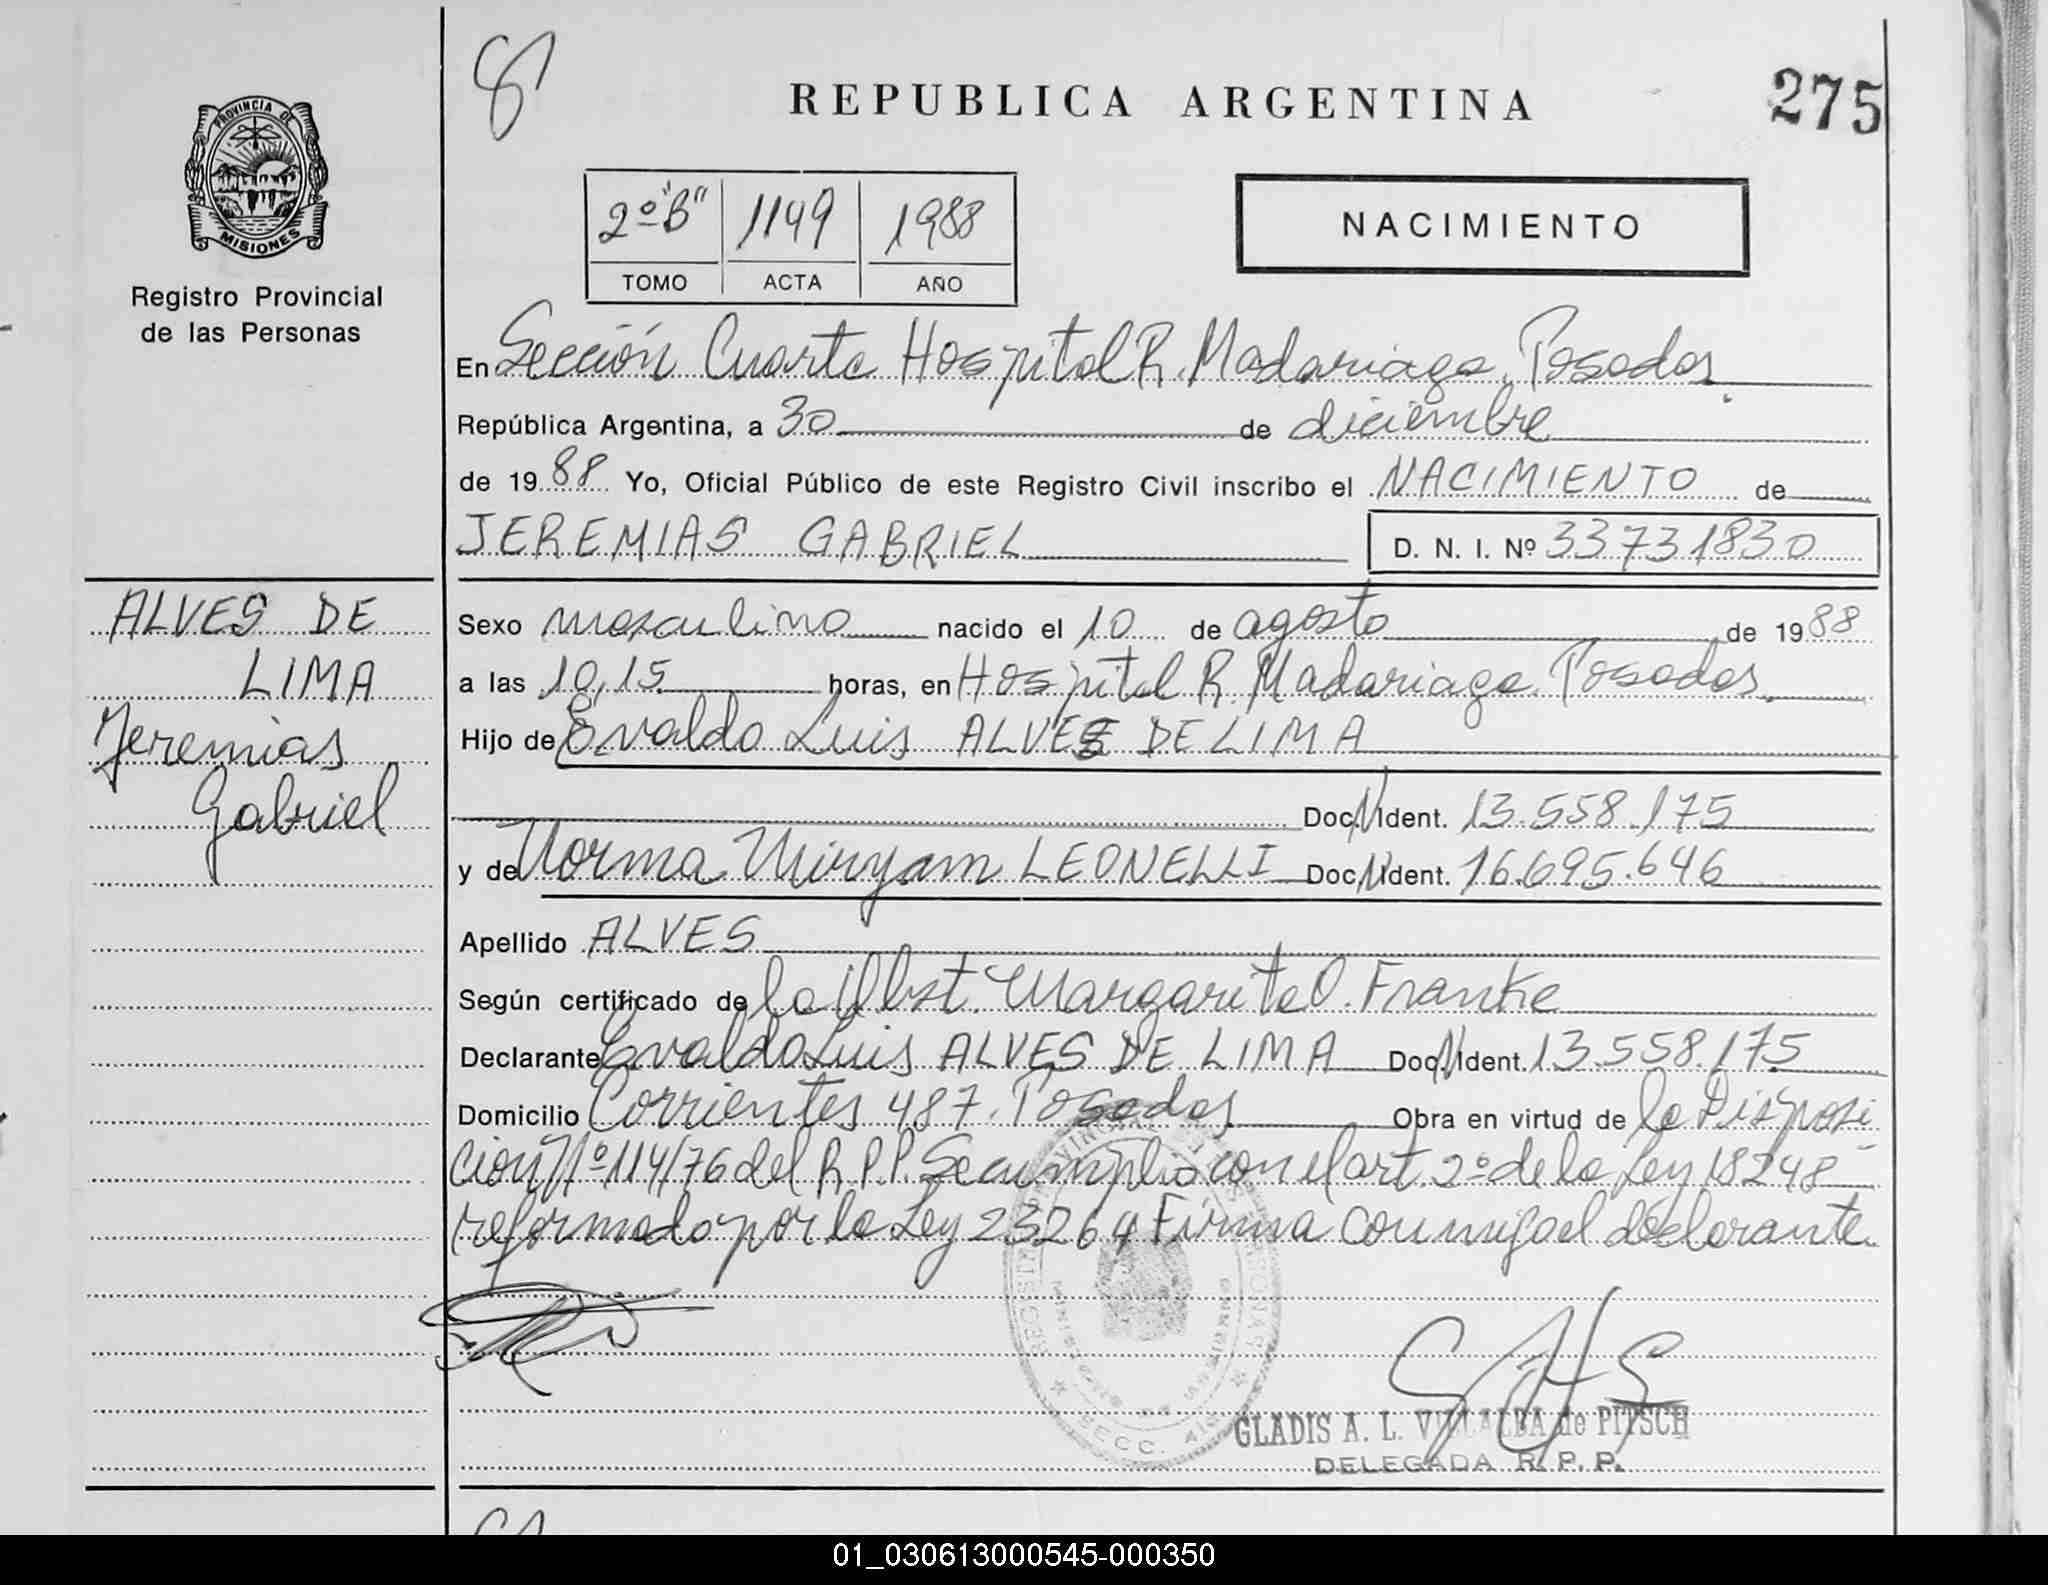 REPUBLICA ARGENTINA
275
PROVINCIA DE
MISIONES
Registro Provincial
de las Personas
2º "B" 1149 1988
TOMO ACTA AÑO
NACIMIENTO
En Sección Cuarta Hospital R. Madariaga. Posadas
República Argentina, a 30 de diciembre
de 1988 Yo, Oficial Público de este Registro Civil inscribo el NACIMIENTO de
JEREMIAS GABRIEL D. N. I. Nº 33731830
ALVES DE
LIMA
Jeremias
Gabriel
Sexo masculino nacido el 10 de agosto de 1988
a las 10,15 horas, en Hospital R. Madariaga. Posadas.
Hijo de Evaldo Luis ALVES DE LIMA
Doc. N. Ident. 13.558.175
y de Norma Miryam LEONELLI Doc. N. Ident. 16.695.646
Apellido ALVES
Según certificado de la Obst. Margarita O. Franke
Declarante Evaldo Luis ALVES DE LIMA Doc. N. Ident. 13.558.175
Domicilio Corrientes 487. Posadas Obra en virtud de la Disposi-
ción Nº 114/76 del R.P.P. Se cumplió con el art. 2º de la Ley 18248
reformado por la Ley 23264 Firma conmigo el declarante.
GLADIS A. L. VILLALBA de PITSCH
DELEGADA R. P. P.
01_030613000545-000350